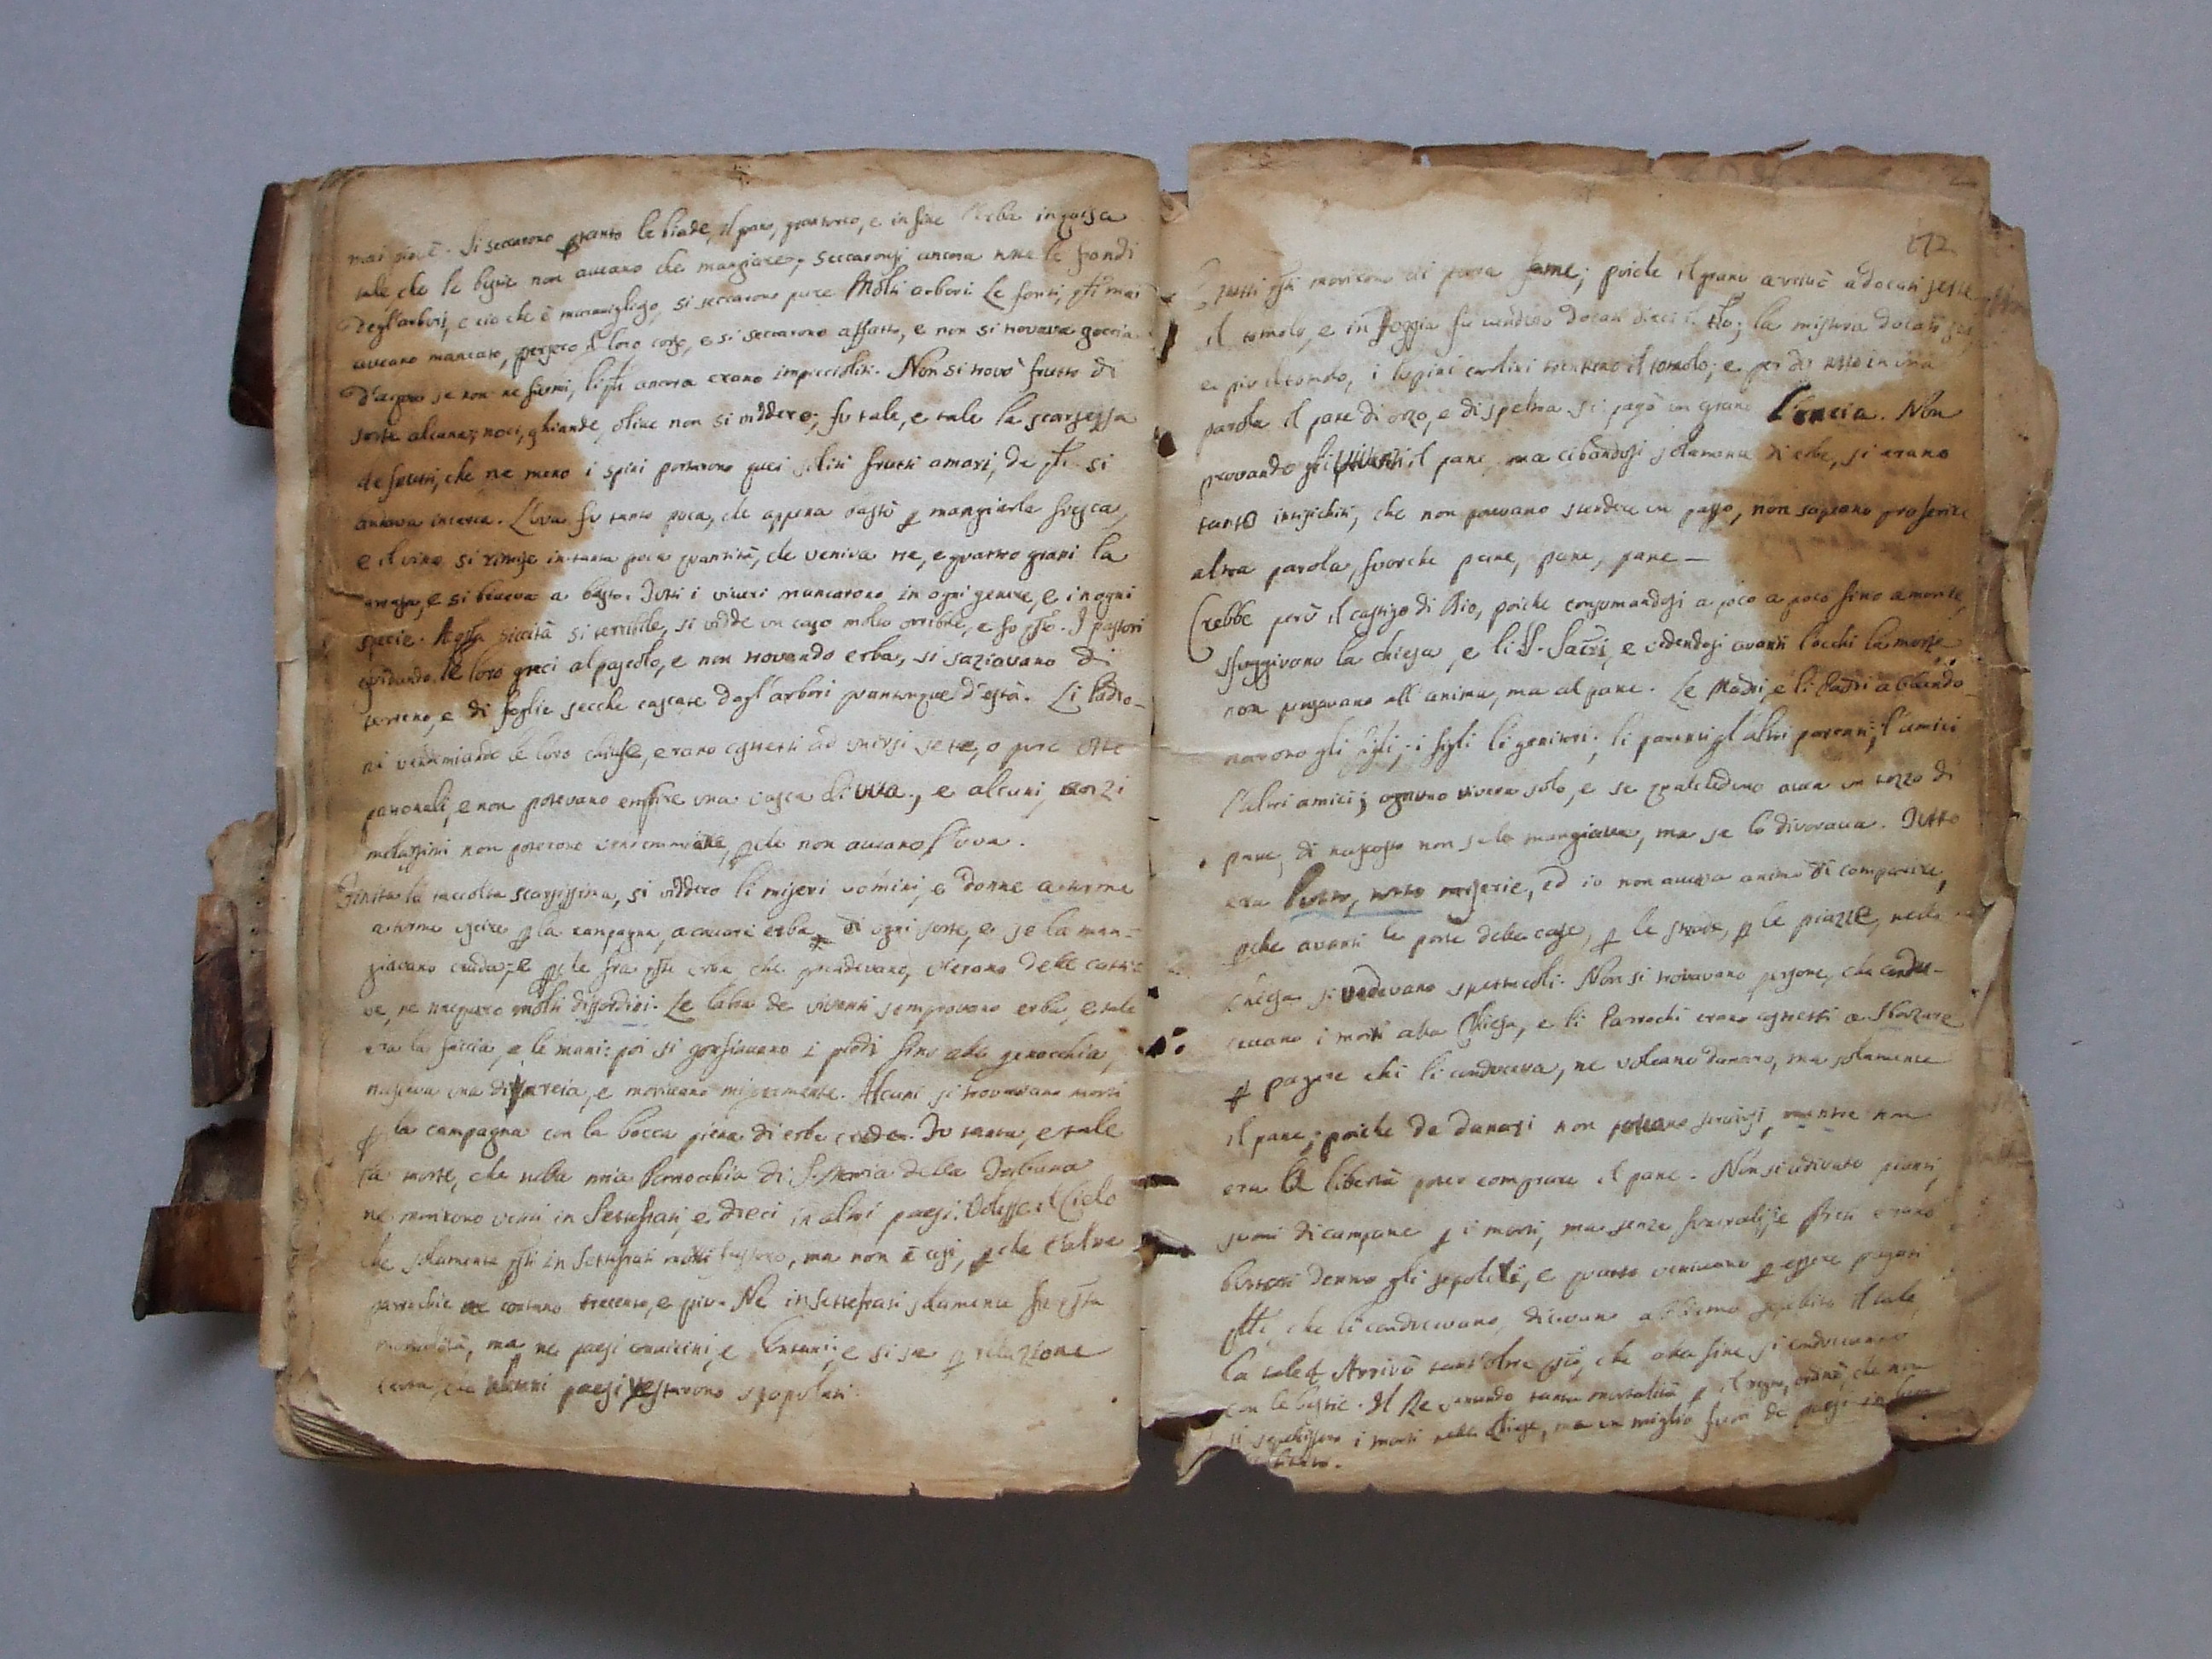 Si seccarono le biade, il grano, granturco, e in fine l'erba in guisa
tale che le bestie non aveano che mangiare; seccaronsi ancora le frondi
degl'arbori, e ciò che è maraviglioso, si seccarono pure molti arbori. Le fonti, mai
aveano mancato, persero il loro corso, e si seccarono affatto, e non si trovava goccia
d'acqua se non ne fiumi, ancora erano impiccioliti. Non si trovò frutto di
sorte alcuna; noci, ghiande, olive non si viddero; fu tale, e tale la scarsezza
de frutti, che ne meno i spini portarono quei soliti frutti amari, de si
andava in cerca. L'uva fu tanto poca, che appena bastò p mangiarla fresca,
e il vino si in tanta poca quantità, che veniva tre, e quattro grani la
e si beveva a Tutti i viveri mancarono in ogni genere, e in ogni
specie. siccità si terribile, si vidde un caso molto orribile, e fu I pastori
guidando le loro greci al pascolo, e non trovando erba, si saziavano di
terreno, e di foglie secche cascate dagl'arbori quantunque d'està. Li Padro-
ni le loro chiuse, erano costretti ad unirsi sette, o pure otto
e non potevano empire una vasca di uva, e alcuni, anzi
non poterono vendemmiare, pche non aveano l'uva.
Finita la raccolta scarsissima, si viddero li miseri uomini, e donne a turme
a turme uscire p la campagna, a cavare erba di ogni sorte, e se la man-
giavano cruda; e pche fra erbe che prendevano, v'erano delle catti-
ve, ne nacquero molti disordini. Le labra de viventi sempravano erba, e tale
era la faccia, e le mani: poi si gonfiavano i piedi sino alle genocchia,
nasceva una diarreia, e morivano miseramente. Alcuni si trovavano morti
p la campagna con la bocca piena di erba cruda. Fu tanta, e tale
la morte, che nella mia Parrocchia di S. Maria della Tribuna
ne morirono venti in Settefrati, e dieci in altri paesi. Volesse il Cielo
che solamente in Settefrati morti fussero, ma non è così, pche l'altre
parrochie ne contano trecento, e più. Ne in Settefrati solamente fu
mortalità, ma ne paesi convicini, e lontani; e si sa p relazione
certa, che alcuni paesi restarono spopolati.
172
Tutti morirono di pura fame; poiche il grano arrivò a docati sette
il tomolo, e in Foggia fu venduto docati dieci il la mistura docati
e più il tomolo, i lupini carlini trentuno il tomolo; e per dir tutto in una
parola il pane di orzo, e di spelta si pagò un grano l'oncia. Non
trovando gli viventi il pane, ma cibandosi solamente di erbe, si erano
tanto intisichiti, che non potevano stendere un passo, non sapeano proferire
altra parola, fuorche pane, pane, pane —
Crebbe però il castigo di Dio, poiche consumandosi a poco a poco sino a morte,
sfuggivano la chiesa, e li SS. Sacri, e vedendosi avanti l'occhi la morte
non pensavano all'anima, ma al pane. Le Madri, e li Padri abbando-
narono gli figli; i figli li genitori; li parenti gl'altri parenti; l'amici
l'altri amici; ognuno viveva solo, e se qualcheduno avea un tozzo di
pane, di nascosto non se lo mangiava, ma se lo divorava. Tutto
era lutto, tutto miserie, ed io non aveva animo di comparire,
pche avanti le porte delle case, p le strade, p le piazze, nella
chiesa si vedevano spettacoli. Non si trovavano persone, che condu-
cevano i morti alla Chiesa, e li Parrochi erano costretti a sforzare
e pagare chi li conduceva, ne voleano danaro, ma solamente
il pane; poiche de danari non servirsi, mentre non
era la libertà poter comprare il pane. Non si udivano pianti,
suoni di campane p i morti, ma senza funerali, e Preti erano
buttati dentro gli sepolcri, e quando venivano p essere pagati
che li conducevano, dicevano abbiamo sepelito il tale,
la tale. Arrivò tant'oltre che alla fine si conducevano
con le bestie. Il Re vedendo tanta mortalità p il regno, ordinò, che non
si sepelissero i morti nelle Chiese, ma un miglio fuori de paesi in